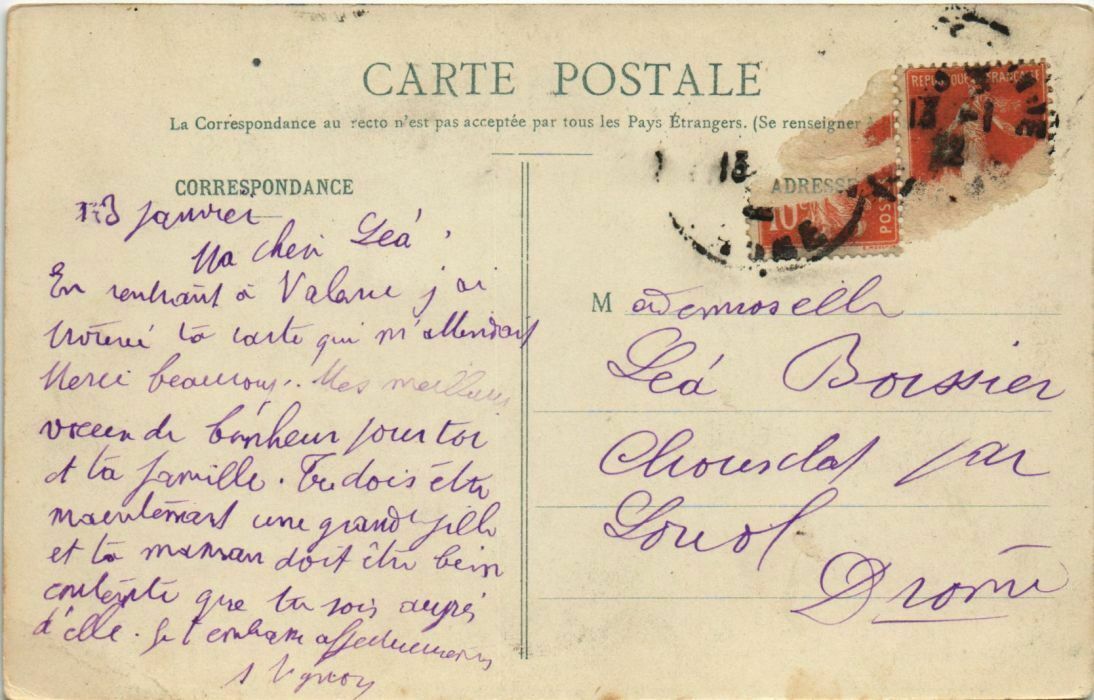 CARTE POSTALE
La Correspondance au recto n'est pas acceptée par tous les Pays Étrangers. (Se renseigner
CORRESPONDANCE
ADRESSE
REPUBLIQUE FRANÇAISE
13 -1
13
10c
POS
13 janvier
Ma cheri Léa,
En rentrant à Valence j'ai
trouvé ta carte qui m'attendait
Merci beaucoup.. Mes meilleurs
voeux de bonheur pour toi
et ta famille. Tu dois être
maintenant une grande fille
et ta maman doit être bien
contente que tu sois auprès
d'elle. Je t'embrasse affectueusement
Mademoiselle
Léa Boissier
Chouclat par
Loriol
Drome